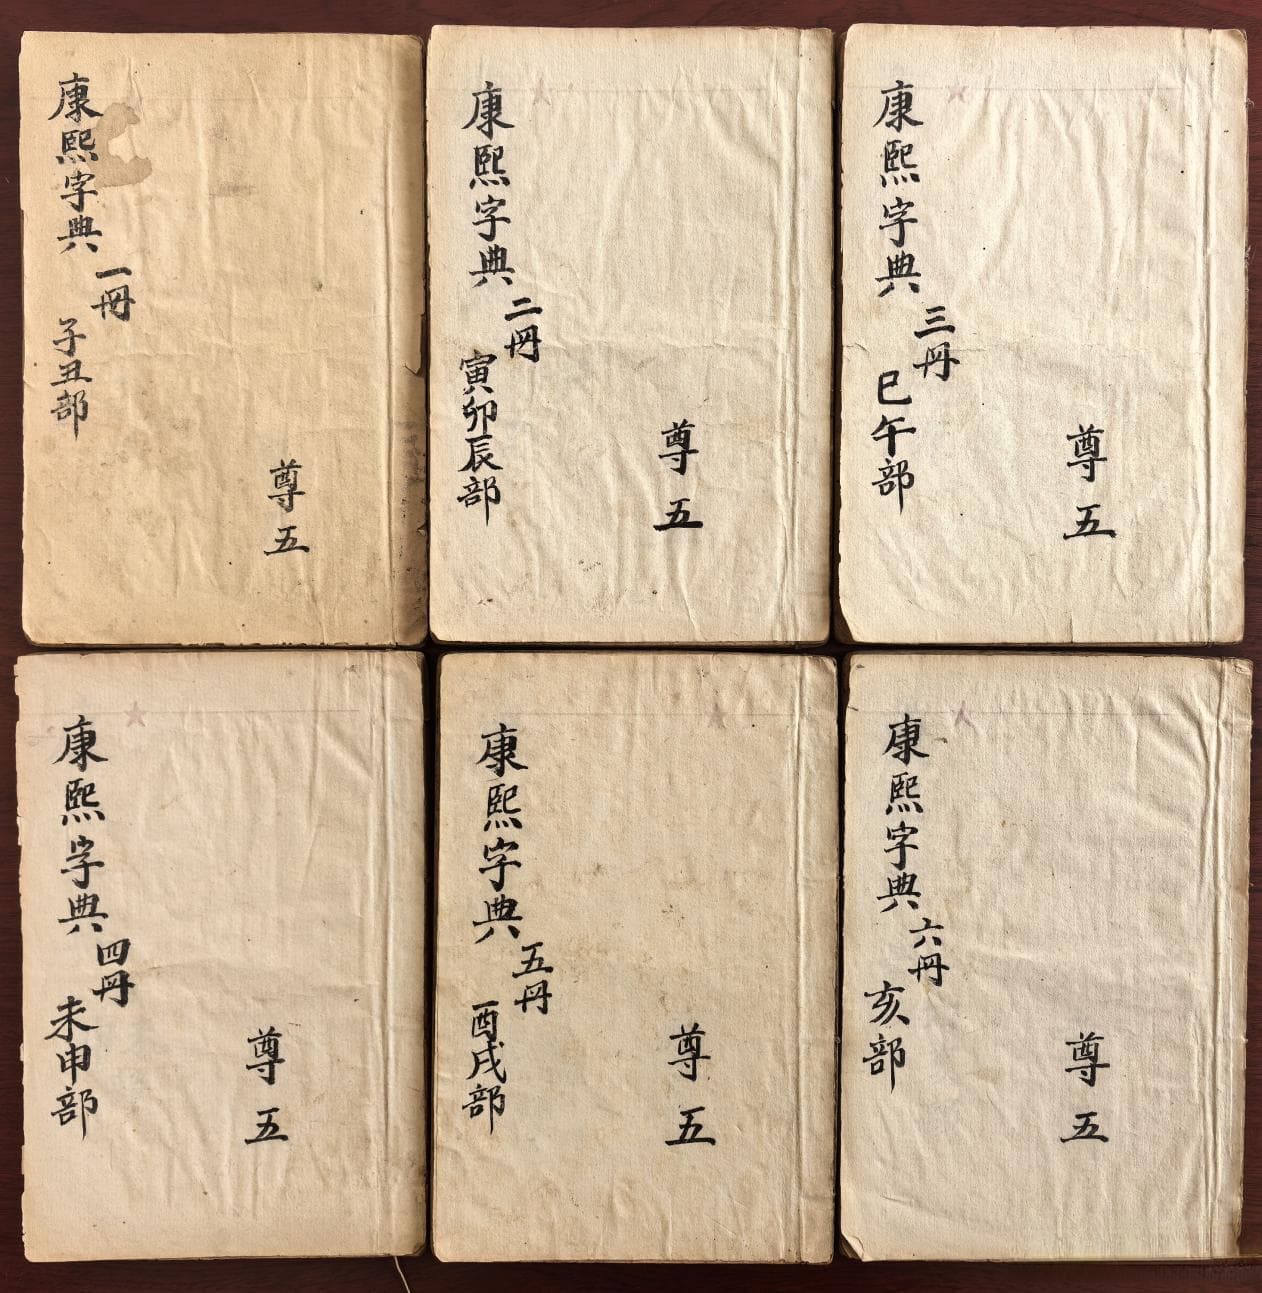 康熙字典
一冊
子丑部
尊五
康熙字典
二冊
寅卯辰部
尊五
康熙字典
三冊
巳午部
尊五
康熙字典
四冊
未申部
尊五
康熙字典
五冊
酉戌部
尊五
康熙字典
六冊
亥部
尊五